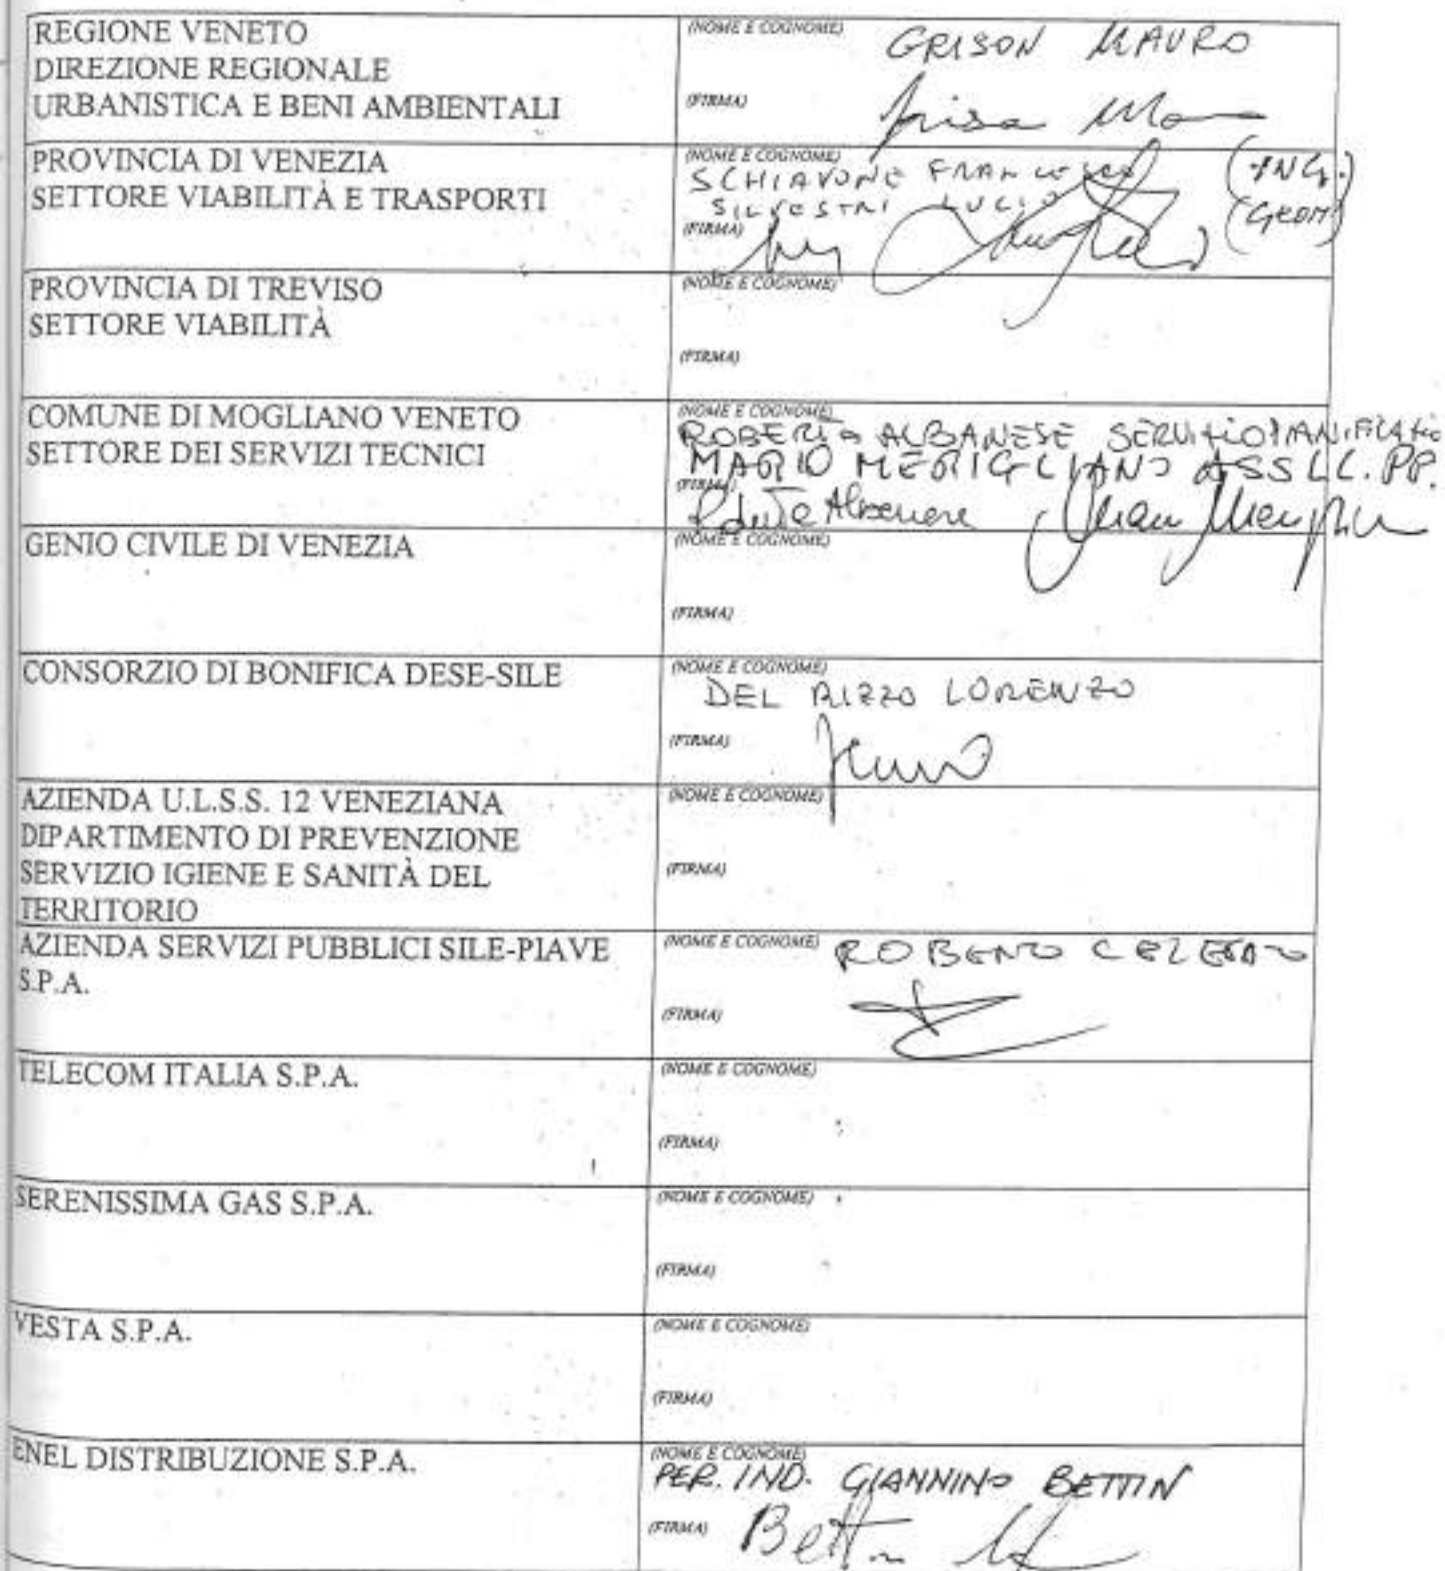 REGIONE VENETO
DIREZIONE REGIONALE
URBANISTICA E BENI AMBIENTALI
(NOME E COGNOME) GRISON MAURO
(FIRMA)
PROVINCIA DI VENEZIA
SETTORE VIABILITÀ E TRASPORTI
(NOME E COGNOME)
SCHIAVONE FRANCESCO (ING.)
SILVESTRI LUCIO (GEOM)
(FIRMA)
PROVINCIA DI TREVISO
SETTORE VIABILITÀ
(NOME E COGNOME)
(FIRMA)
COMUNE DI MOGLIANO VENETO
SETTORE DEI SERVIZI TECNICI
(NOME E COGNOME)
ALBANESE
MARIO MERIGLIANO ASS LL. PP.
(FIRMA)
GENIO CIVILE DI VENEZIA
(NOME E COGNOME)
(FIRMA)
CONSORZIO DI BONIFICA DESE-SILE
(NOME E COGNOME)
DEL RIZZO LORENZO
(FIRMA)
AZIENDA U.L.S.S. 12 VENEZIANA
DIPARTIMENTO DI PREVENZIONE
SERVIZIO IGIENE E SANITÀ DEL
TERRITORIO
(NOME E COGNOME)
(FIRMA)
AZIENDA SERVIZI PUBBLICI SILE-PIAVE
S.P.A.
(NOME E COGNOME) ROBERTO
(FIRMA)
TELECOM ITALIA S.P.A.
(NOME E COGNOME)
(FIRMA)
SERENISSIMA GAS S.P.A.
(NOME E COGNOME)
(FIRMA)
VESTA S.P.A.
(NOME E COGNOME)
(FIRMA)
ENEL DISTRIBUZIONE S.P.A.
(NOME E COGNOME)
PER. IND. GIANNINO BETTIN
(FIRMA) Bettin